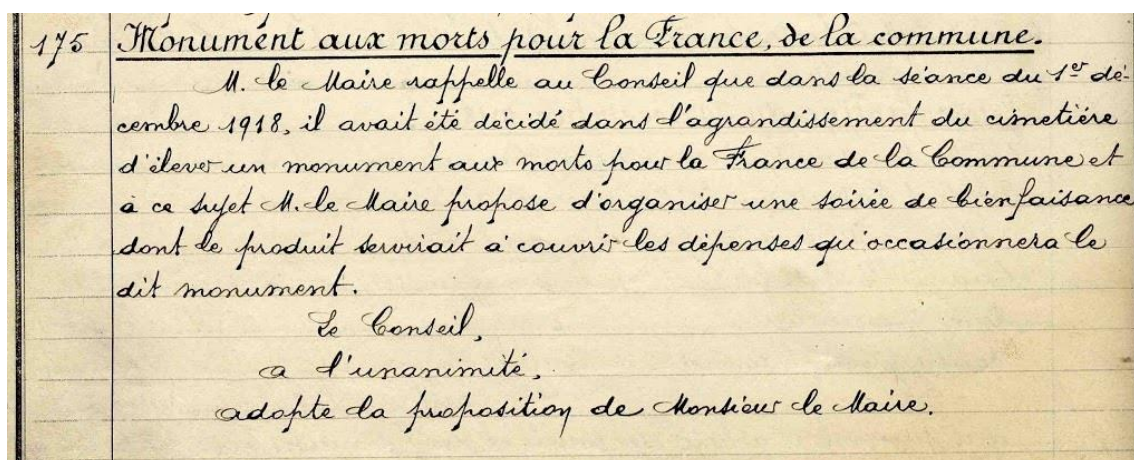 175 Monument aux morts pour la France, de la commune.
M. le Maire rappelle au Conseil que dans la séance du 1er dé-
cembre 1918, il avait été décidé dans l'agrandissement du cimetière
d'élever un monument aux morts pour la France de la Commune et
à ce sujet M. le Maire propose d'organiser une soirée de bienfaisance
dont le produit servirait à couvrir les dépenses qu'occasionnera le
dit monument.
Le Conseil,
a l'unanimité,
adopte la proposition de Monsieur le Maire.